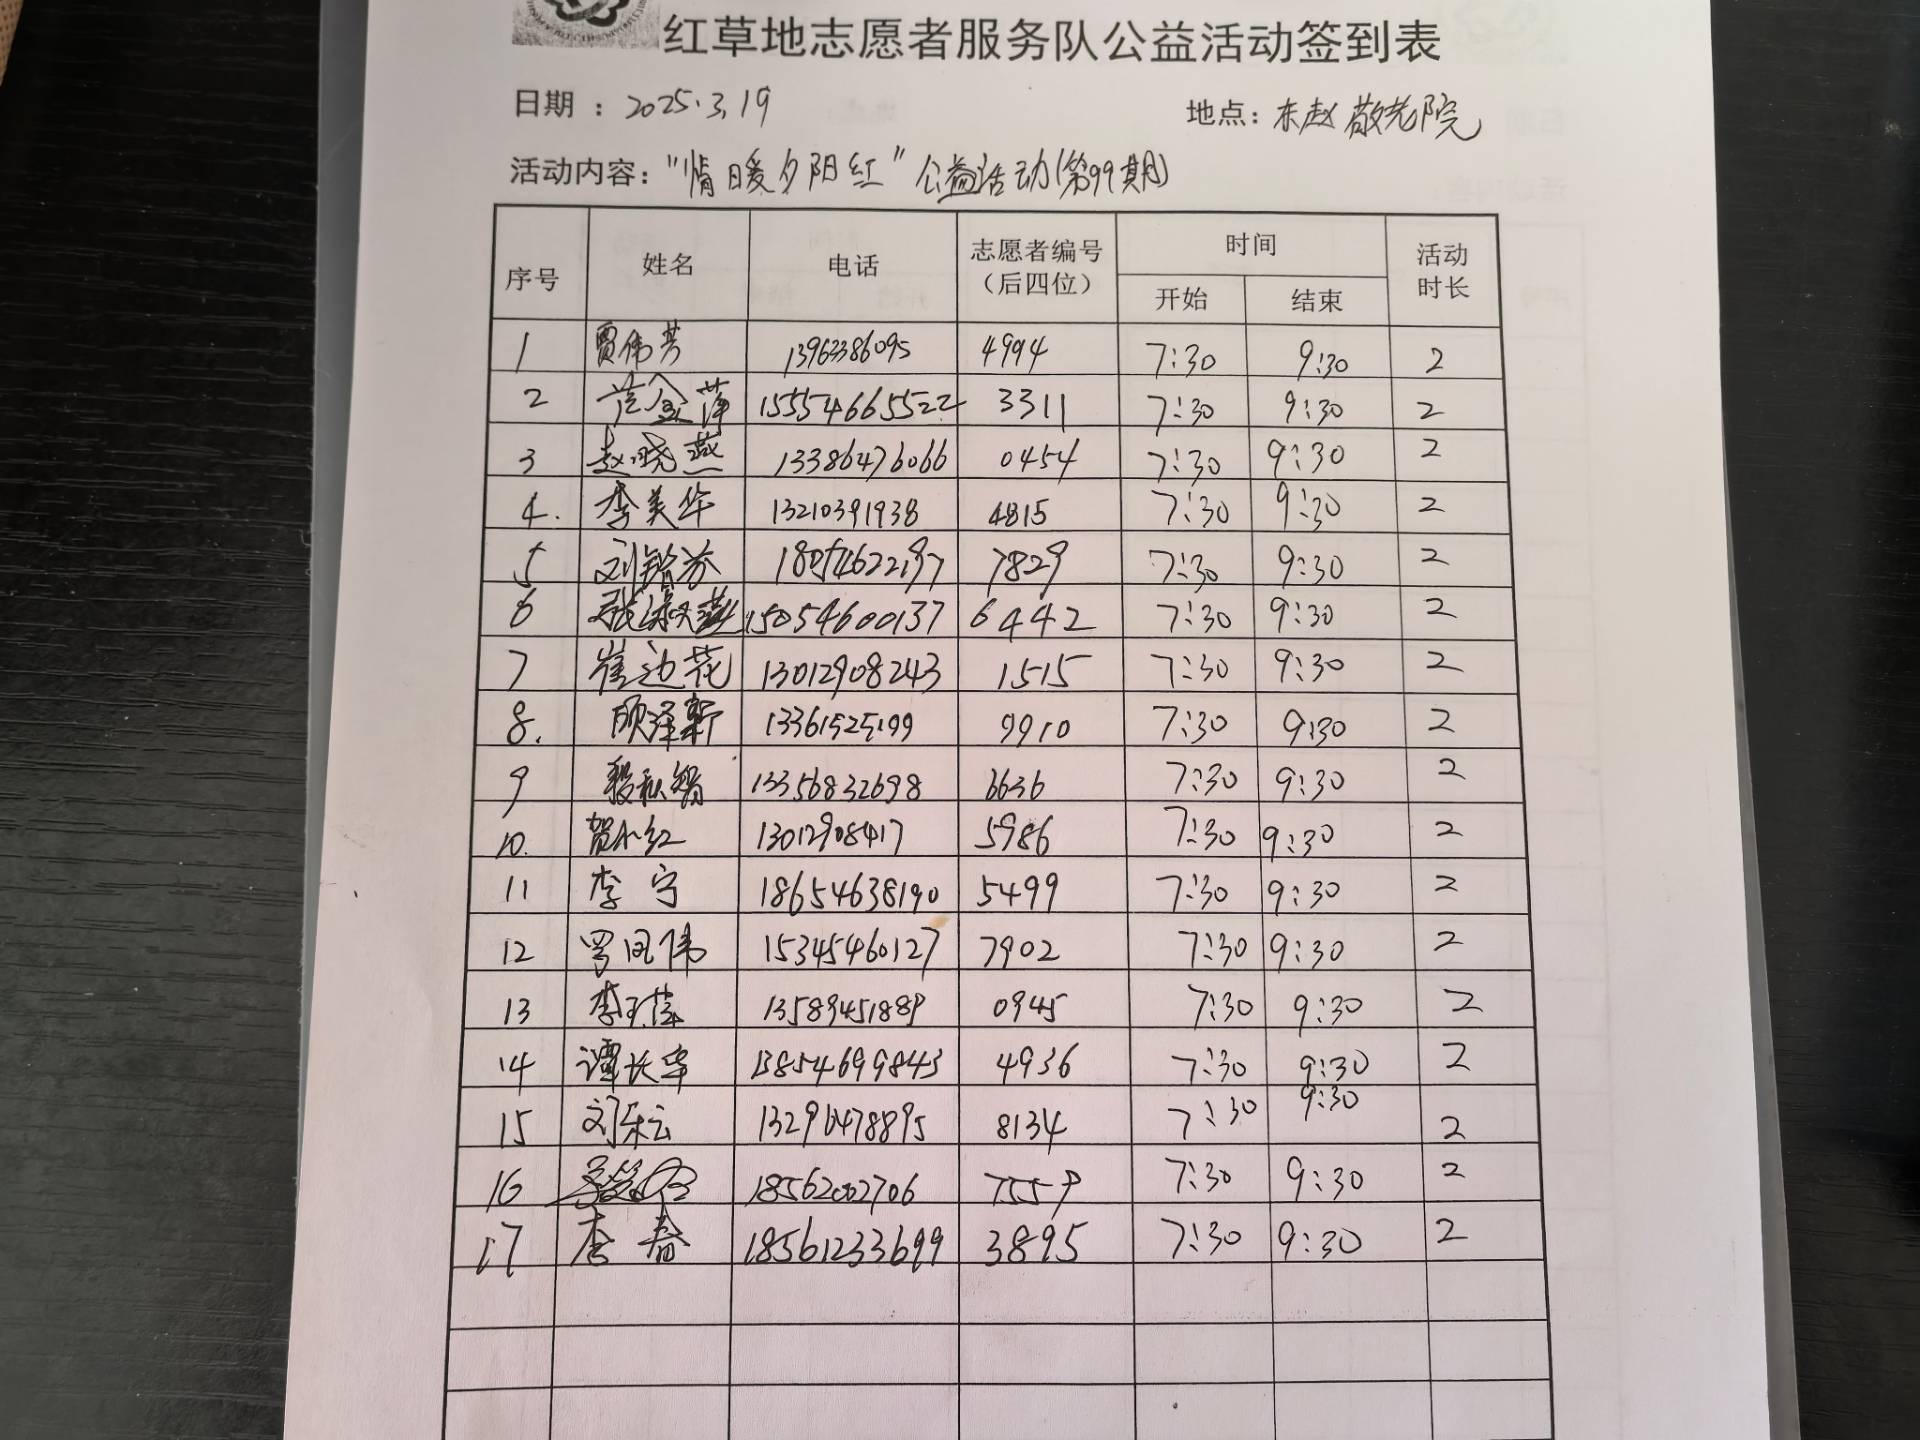 红草地志愿者服务队公益活动签到表
日期：2025.3.19 地点：东赵敬老院
活动内容："情暖夕阳红"公益活动(第99期)
序号 姓名 电话 志愿者编号（后四位） 时间 开始 结束 活动时长
1 贾伟芳 13963386095 4994 7:30 9:30 2
2 金萍 15554665522 3311 7:30 9:30 2
3 赵晓燕 13386476066 0454 7:30 9:30 2
4. 李美华 13210391938 4815 7:30 9:30 2
5 刘 7829 7:30 9:30 2
6 张 15054600137 6442 7:30 9:30 2
7 崔边花 13012908243 1515 7:30 9:30 2
8. 顾泽新 13361525199 9910 7:30 9:30 2
9 13356832698 6636 7:30 9:30 2
10. 贺小红 13012908417 5986 7:30 9:30 2
11 李宁 18654638190 5499 7:30 9:30 2
12 罗凤伟 15345460127 7902 7:30 9:30 2
13 李玉萍 13589451889 0945 7:30 9:30 2
14 谭长华 13854699843 4936 7:30 9:30 2
15 刘乐云 13296478895 8134 7:30 9:30 2
16 18562002706 7559 7:30 9:30 2
17 李春 18561233699 3895 7:30 9:30 2